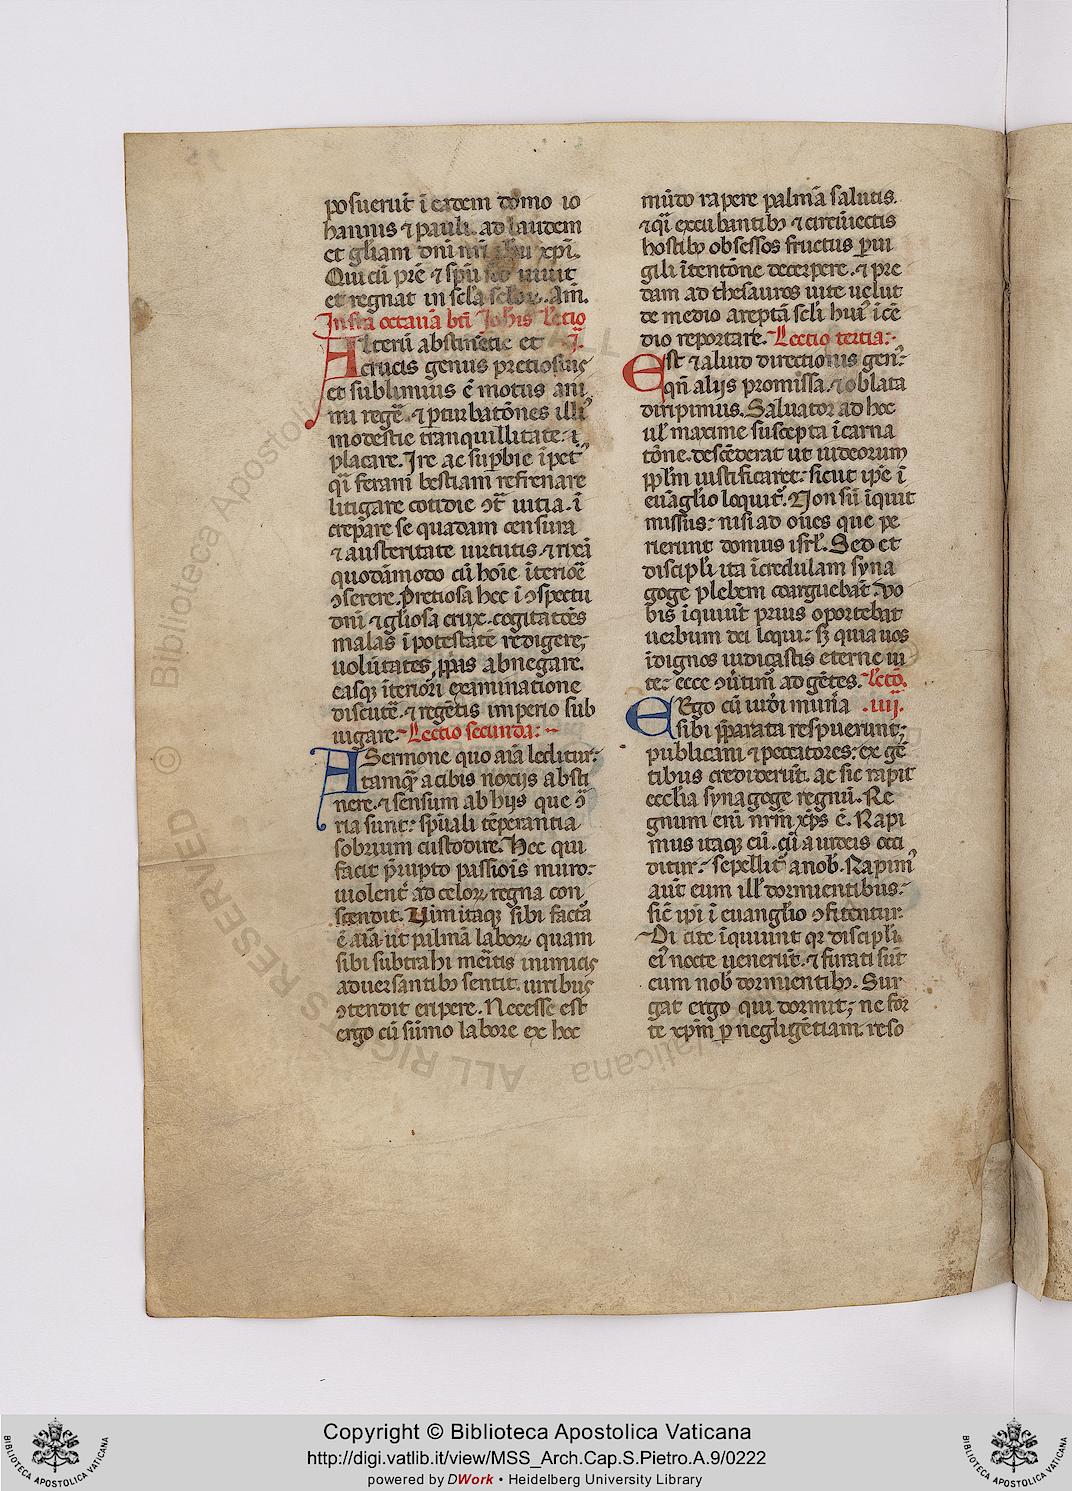 posuerūt ī eadem domo io
hannis ⁊ pauli. ad laudem
et gl̄iam dn̄i nr̄i ihu xp̄i.
Qui cū pr̄e ⁊ sp̄u sc̄o uiuit
et regnat in scl̄a sclōꝝ. Am̄.
Infra octauā btī Ioh̄is Lectio
Alterū abstinētie et .j.
crucis genus pretiosius
et sublimius ē motus ani
mi regē. ⁊ ꝑturbatōnes illiꝰ
modestie tranquillitate. ī
placare. Ire ac suꝑbie īpet
qͣ feram bestiam refrenare
litigare cotidie ꝯt̄ uitia. ī
crepare se quadam censura
⁊ austeritate uirtutis. ⁊ rixā
quodāmodo cū hoīe īteriōe
ꝯserere. Pretiosa hec ī ꝯspectu
dn̄i ⁊ gl̄iosa crux. cogitatōes
malas ī potestatē redigere;
uolūtates ꝓpas abnegare.
easqꝫ īteriori examinatione
discutē. ⁊ regētis imperio sub
iugare. Lectio secunda:
A Sermone quo aīa leditur:
tamqͣ a cibis noxijs absti
nere. ⁊ sensum ab hijs que ꝯ̄
ria sunt: sp̄uali tēperantia
sobrium custodire. Hec qui
facit p̄rupto passiōis muro:
uiolent᷑ ad celoꝝ regna con
scendit. Uim itaqꝫ sibi factā
ē aīa ut palmā laboꝝ quam
sibi subtrahi mētis inimicis
aduersantibꝫ sentit. uiribus
ꝯtendit eripere. Necesse est
ergo cū sūmo labore ex hoc
mūdo rapere palmā salutis.
⁊ qͣ excubantibꝫ ⁊ circūiectis
hostibꝫ obsessos fructus ꝑui
gili ītentōne decerpere. ⁊ pre
dam ad thesauros uite uelut
de medio areptā scl̄i huiꝰ īcē
dio reportare. Lectio tertia:
Est ⁊ aliud directionis genꝰ:
qn̄ alijs promissa. ⁊ oblata
diripimus. Saluator ad hoc
ul̄ maxime suscepta īcarna
tōne. descēderat ut iudeorum
pp̄lm iustificaret: sicut ip̄e ī
euāglio loquit᷑. Non sū īquit
missus: nisi ad oues que pe
rierunt domus isrl̄. Sed et
discipl̄i ita īcredulam syna
goge plebem coarguebāt. Uo
bis īquiūt prius oportebat
uerbum dei loqui: sꝫ quia uos
īdignos iudicastis eterne ui
te: ecce ꝯūtim᷑ ad gētes. Lectō.
Ergo cū iudi munīa .iiij.
sibi p̄parata respuerunt;
publicani ⁊ peccatores: ex gē
tibus crediderūt. ac sic rapit
eccl̄ia synagoge regnū. Re
gnum eni nrm̄ xp̄s ē. Rapi
mus itaqꝫ cū. cū a iudeis occi
ditur: sepellit᷑ a nob̄. Rapimꝰ
aut̄ eum ill̄ dormientibus:
sic̄ ip̄i ī euanglio ꝯfitentur.
Dicite īquiunt qꝛ discipl̄i
eiꝰ nocte uenerūt. ⁊ furati sūt
eum nob̄ dormientibꝫ. Sur
gat ergo qui dormit; ne for
te xp̄m ꝑ negligētiam. reso
Copyright © Biblioteca Apostolica Vaticana
http://digi.vatlib.it/view/MSS_Arch.Cap.S.Pietro.A.9/0222
powered by DWork • Heidelberg University Library
BIBLIOTECA APOSTOLICA VATICANA
BIBLIOTECA APOSTOLICA VATICANA
© Biblioteca Apostolica Vaticana
ALL RIGHTS RESERVED